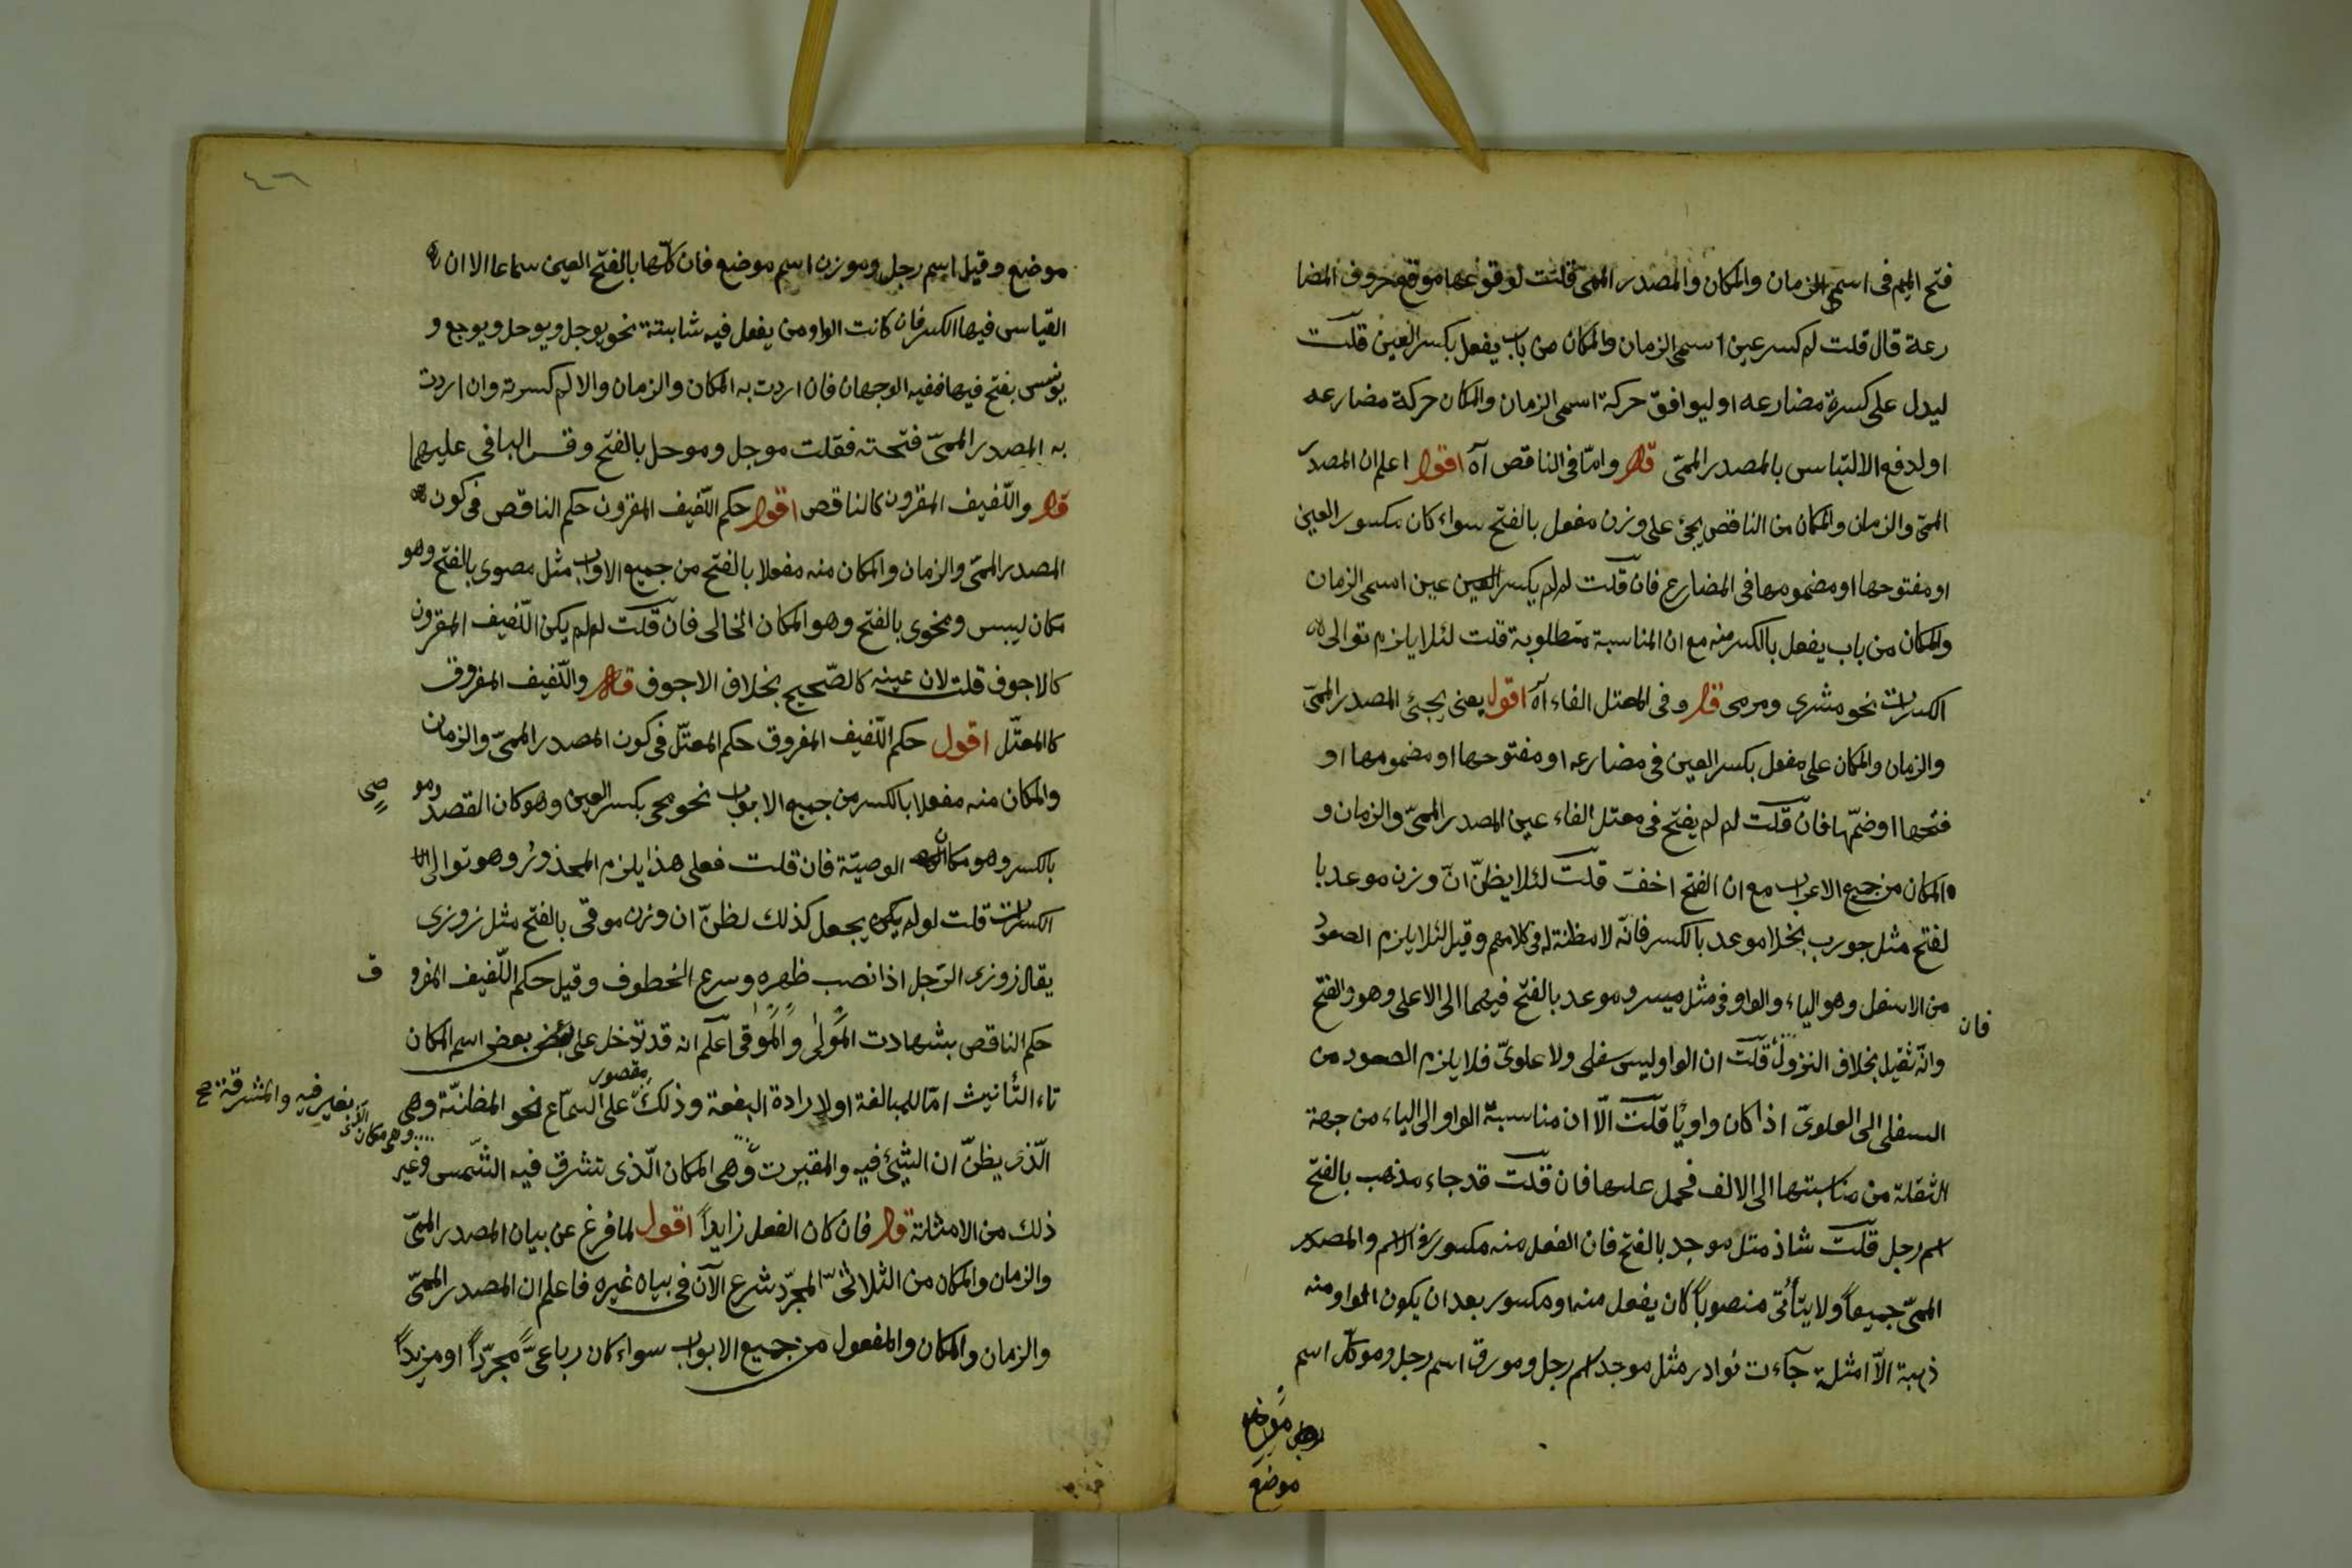 فتح الميم فى اسمى الزمان والمكان والمصدر الميمىّ قلت لوقوعها موقع حروف المضا
رعة قال قلت لم كسر عين اسمى الزمان والمكان من باب يفعل بكسر العين قلت
ليدل على كسرة مضارعه او ليوافق حركة اسمى الزمان والمكان حركة مضارعه
او لدفع الالتباس بالمصدر الميمىّ قال وامّا فى الناقص آه اقول اعلم ان المصدر
الميمىّ والزمان والمكان من الناقص يجئ على وزن مفعل بالفتح سواء كان مكسور العين
او مفتوحها او مضمومها فى المضارع فان قلت لم لم يكسر العين عين اسمى الزمان
والمكان من باب يفعل بالكسر منه مع ان المناسبة متطلوبة قلت لئلا يلزم توالى
الكسرات نحو مشرى ومرمى قال وفى المعتل الفاء آه اقول يعنى يجئ المصدر الميمىّ
والزمان والمكان على مفعل بكسر العين فى مضارعه او مفتوحها او مضمومها او
فتحها او ضمّها فان قلت لم لم يفتح فى معتل الفاء عين المصدر الميمىّ والزمان و
المكان من جميع الاعراب مع ان الفتح اخف قلت لئلا يظنّ انّ وزن موعد با
لفتح مثل جورب بخلا موعد بالكسر فانّه لا مظنة له فى كلامهم وقيل لئلا يلزم الصعود
من الاسفل وهو الياء والواو فى مثل ميسر وموعد بالفتح فيهما الى الاعلى وهو الفتح
فان
وانّه ثقيل بخلاف النزول قلت ان الواو ليس سفلى ولا علوىّ فلا يلزم الصعود من
السفلى الى العلوىّ اذا كان واويا قلت الّا ان مناسبة الواو الى الياء من جهة
الثقلة من مناسبتها الى الالف فحمل عليها فان قلت قد جاء مذهب بالفتح
اسم رجل قلت شاذ مثل موجد بالفتح فان الفعل منه مكسور فى الاسم والمصدر
الميمىّ جميعاً ولا يتأتى منصوباً كان يفعل منه او مكسور بعد ان يكون الواو منه
ذهبة الّا امثلة جآءت نوادر مثل موجد اسم رجل ومورق اسم رجل وموكل اسم
موضع
موضع وقيل اسم رجل وموزن اسم موضع فان كلّها بالفتح العين سماعا الا ان
القياس فيها الكسر فان كانت الواو من يفعل فيه ثابتة نحو يوجل ويوحل ويوجع و
يفتح فيها ففيه الوجهان فان اردت به المكان والزمان والالم كسرته وان اردت
به المصدر الميمىّ فتحته فقلت موجل وموحل بالفتح وقس الباقى عليهما
قال واللّفيف المقرون كالناقص اقول حكم اللّفيف المقرون حكم الناقص فى كون
المصدر الميمىّ والزمان والمكان منه مفعلا بالفتح من جميع الابواب مثل مصوى بالفتح وهو
مكان ليبس ومخوى بالفتح وهو المكان الخالى فان قلت لم لم يكن اللّفيف المقرون
كالاجوف قلت لان عينه كالصّحيح بخلاف الاجوف قال واللّفيف المفروق
كالمعتّل اقول حكم اللّفيف المفروق حكم المعتّل فى كون المصدر الميمىّ والزمان
والمكان منه مفعلا بالكسر من جميع الابواب نحو محى بكسر العين وهو كان القصد ومو
صى
بالكسر وهو مكان الوصيّة فان قلت فعلى هذا يلزم المحذور وهو توالى
الكسرات قلت لو لم يجعل كذلك لظنّ ان وزن موقى بالفتح مثل زوزى
يقال زوزى الرّجل اذا نصب ظهره وسرع الخطوف وقيل حكم اللّفيف المفرو
ق
حكم الناقص بشهادت المولى والموقى اعلم انه قد تدخل على بعض اسم المكان
تاء التّأنيث امّا للمبالغة او لارادة البقعة وذلك مقصور على السمّاع نحو المظنّة وهى
الّذى يظنّ ان الشيئ فيه والمقبرت وهى المكان الّذى تشرق فيه الشّمس وغير
وهى مكان الّذى يقبر فيه والمشرقة صح
ذلك من الامثلة قال فان كان الفعل زايداً اقول لما فرغ عن بيان المصدر الميمىّ
والزمان والمكان من الثلاثىّ المجرّد شرع الآن فى بيان غيره فاعلم ان المصدر الميمىّ
والزمان والمكان والمفعول من جميع الابواب سواء كان رباعىّ مجرّداً او مزيداً